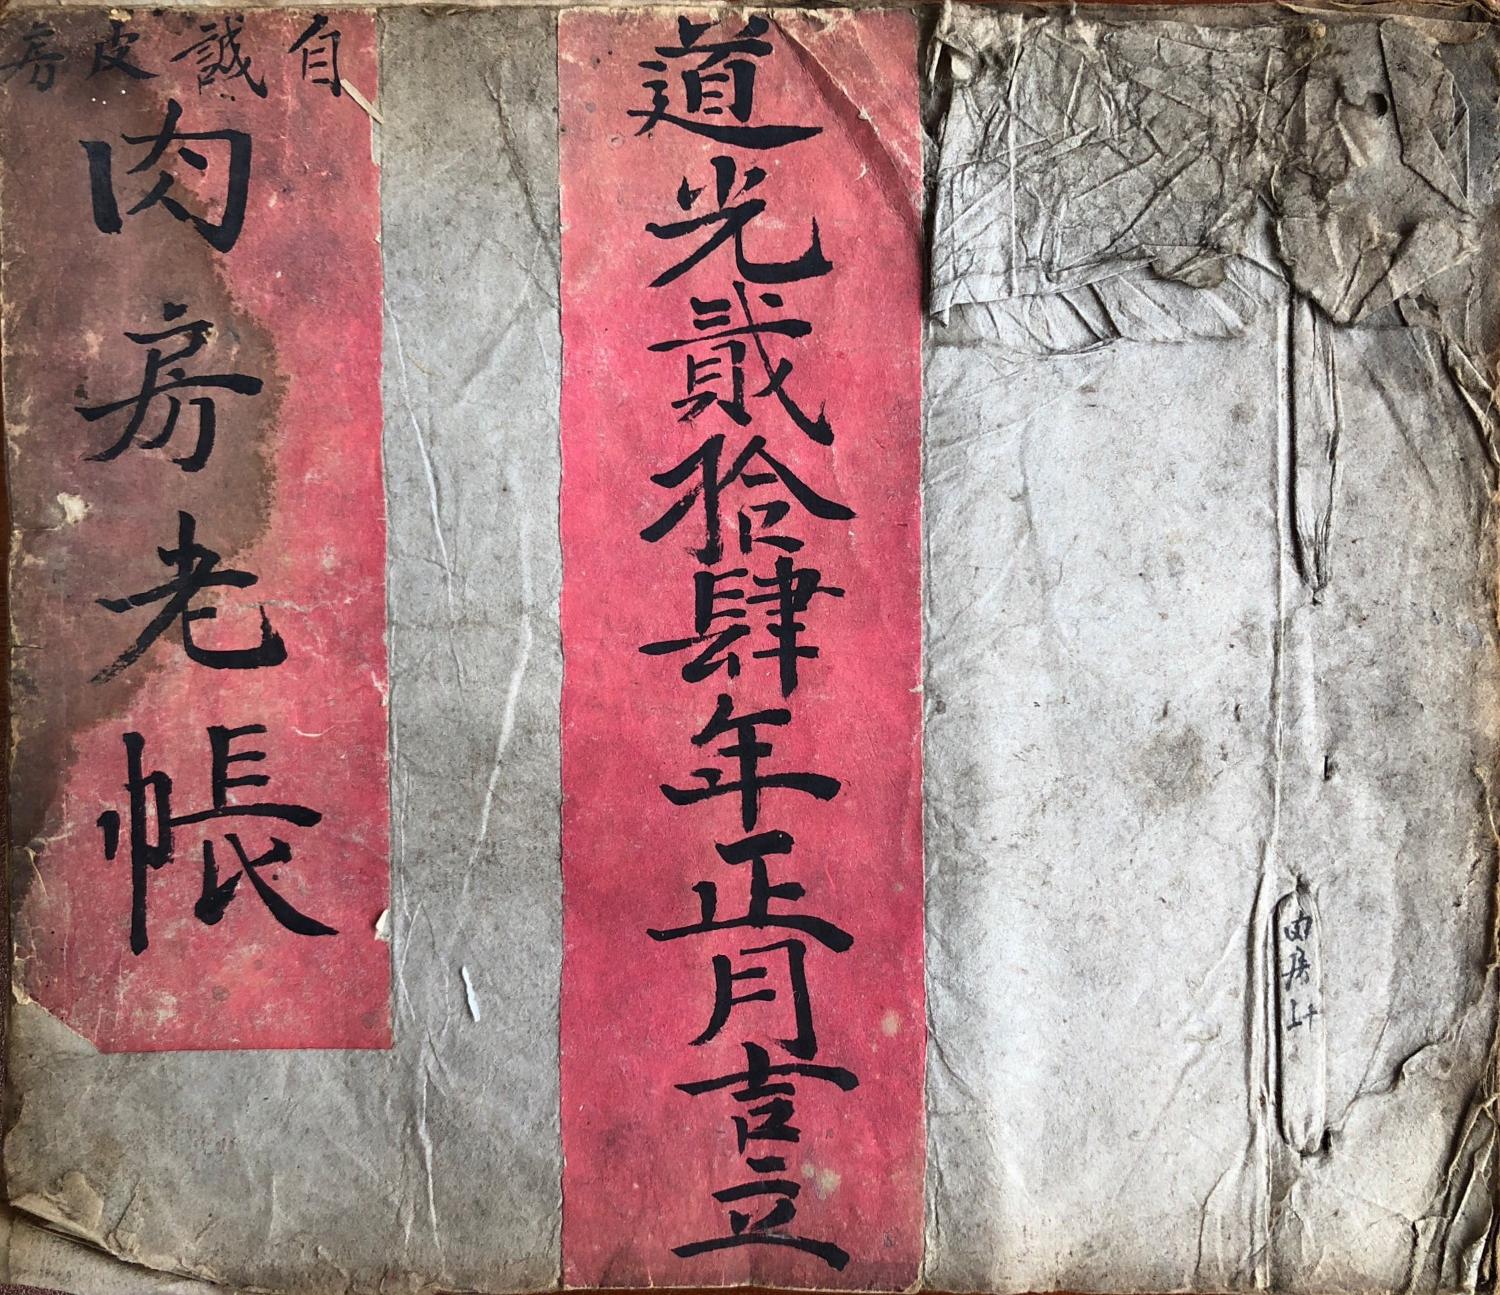 道光貳拾肆年正月吉立
自誠皮房
肉房老帳
肉房